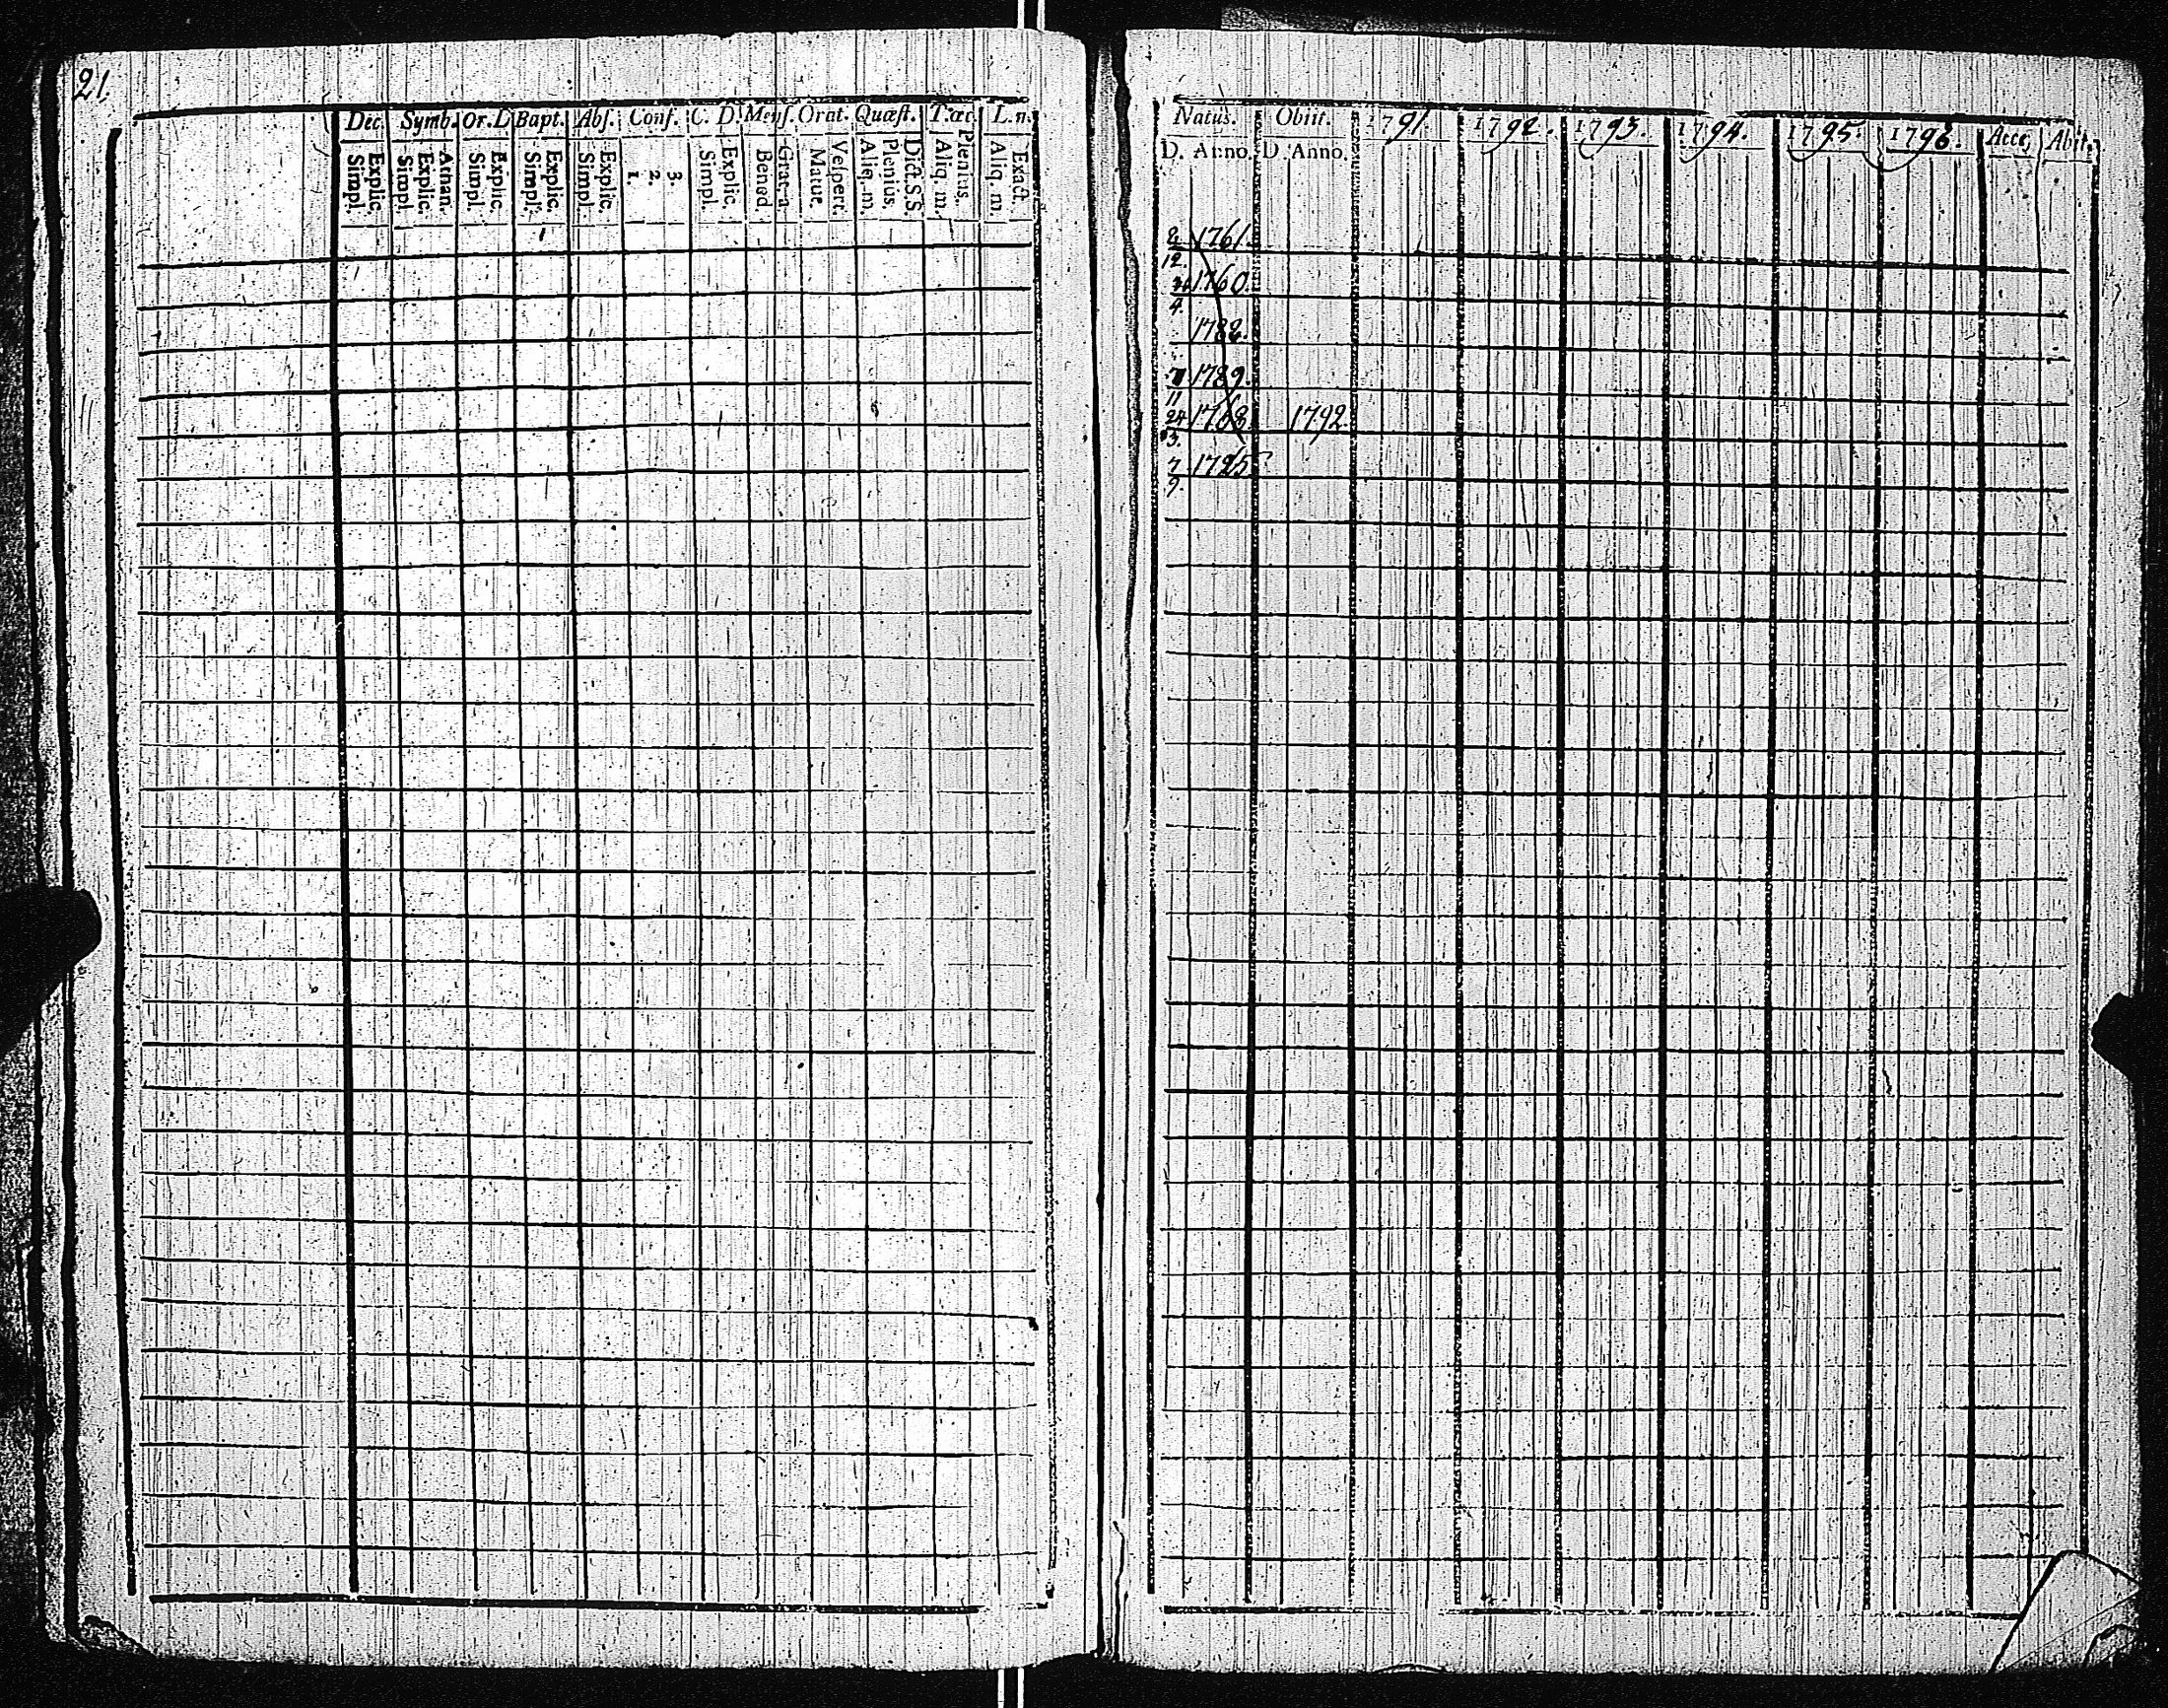 21.
Dec. Symb. Or. D Bapt. Abs. Conf. C. D. Mens. Orat. Quæst. T. œc. L. n.
Simpl. Explic. Simpl. Explic. Athan. Simpl. Explic. Simpl. Explic. Simpl. Explic. 1. 2. 3. Simpl. Explic. Bened. Matut. Vespert. Aliq. m. Plenius. Dict. S. S. Aliq. m. Plenius. Aliq. m. Exact.
Natus. Obiit. 1791. 1792. 1793. 1794. 1795. 1796. Acce. Abit.
D. Anno. D. Anno.
1761.
12
1760.
4.
1782.
1789.
11
24 1763. 1792.
3.
7 1725
9.